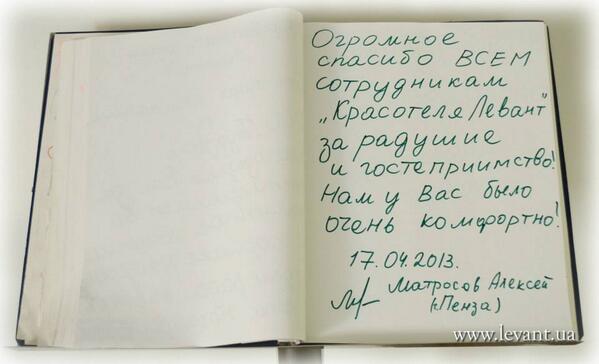 Огромное
спасибо ВСЕМ
сотрудникам
„Красотеля Левант"
за радушие
и гостеприимство!
Нам у Вас было
очень комфортно!
17.04.2013.
Матросов Алексей
(г.Пенза)
www.levant.ua